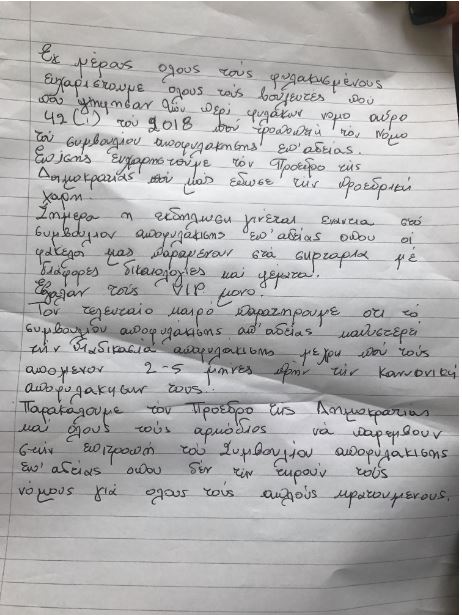 Εκ μέρους ολους τούς φυλακισμένους
ευχαριστουμε όλους τούς βουλευτές που
που ψηφησαν των περί φυλάκων νομο αυρο
42(1) τού 2018 που τροποποιή τόν νόμο
τού συμβουλίου αποφυλάκησης επ' αδείας.
Επισης ευχαρηστούμε τόν Πρόεδρο της
Δημοκρατίας που μάς εδωσε την προεδρική
χαρη.
Σήμερα η εκδηλωση γίνεται εναντια στό
συμβουλιον αποφυλάκισης επ' αδείας οπου οι
φάκελοι μας παραμενουν στά συρταρια μέ
διάφορες δικαιολογίες και ψέματα.
Εβγαλαν τούς VIP μονο.
Τον τελευταίο καιρό παρατηρουμε οτι τό
συμβουλιον αποφυλάκισης επ' αδείας καθυστερεί
τήν διαδικασία αποφυλάκισης μεχρι που τούς
απομενουν 2-5 μήνες πρήν την κανονική
αποφυλακησην τους.
Παρακαλουμε τόν Πρόεδρο της Δημοκρατιας
και όλους τούς αρμόδιος νά παρεμβουν
στήν επιτροπή τού Συμβουλίου αποφυλακισης
επ' αδείας οπου δέν τήν τηρούν τούς
νόμους γιά ολους τούς απλούς κρατουμενους.